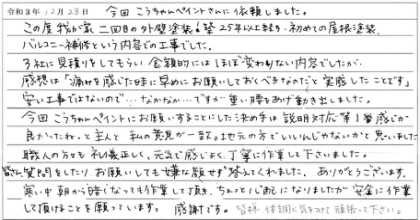 令和3年12月28日 今回こうちゃんペイントさんに依頼しました。
この度 我が家 二回目の外壁塗装！築25年以上経ち・初めての屋根塗装、
バルコニー補修という内容での工事でした。
3社に見積りをしてもらい 金額的にはほぼ変わりない内容でしたが、
感想は「痛みを感じた時に早めにお願いしておくべきなのだと実感したことです」
安い工事ではないので…なかなか…ですが重い腰をあげ動き出しました。
今回こうちゃんペイントにお願いすることにした決め手は説明対応等1番感じが
良かったわ。と主人と私の意見が一致。地元の方でいいんじゃないかと思いました
職人の方々も礼儀正しく、元気で感じよく、丁寧に作業して下さいました。
質問をしたり、お願いしても嫌な顔せず答えてくれました。ありがとうございます。
寒い中 朝から暗くなっても作業して頂き、ちょっと心配になりましたが安全に作業
して頂けることを願っています。 感謝です。 皆様 体調に気をつけて頑張って下さい。